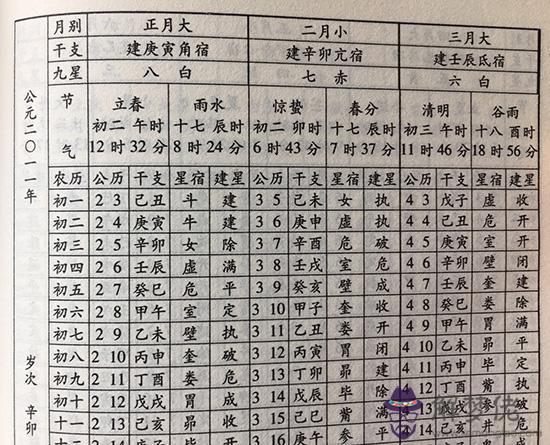 月别 正月大 二月小 三月大
干支 建庚寅角宿 建辛卯亢宿 建壬辰氐宿
九星 八白 七赤 六白
公元二〇一一年
岁次 辛卯
节气
立春 雨水 惊蛰 春分 清明 谷雨
初二 午时 十七 辰时 初二 卯时 十七 辰时 初三 午时 十八 酉时
12时32分 8时24分 6时43分 7时37分 11时46分 18时56分
农历 公历 干支 星宿 建星 公历 干支 星宿 建星 公历 干支 星宿 建星
初一 2 3 己丑 斗 建 3 5 己未 女 执 4 3 戊子 虚 收
初二 2 4 庚寅 牛 建 3 6 庚申 虚 执 4 4 己丑 危 开
初三 2 5 辛卯 女 除 3 7 辛酉 危 破 4 5 庚寅 室 开
初四 2 6 壬辰 虚 满 3 8 壬戌 室 危 4 6 辛卯 壁 闭
初五 2 7 癸巳 危 平 3 9 癸亥 壁 成 4 7 壬辰 奎 建
初六 2 8 甲午 室 定 3 10 甲子 奎 收 4 8 癸巳 娄 除
初七 2 9 乙未 壁 执 3 11 乙丑 娄 开 4 9 甲午 胃 满
初八 2 10 丙申 奎 破 3 12 丙寅 胃 闭 4 10 乙未 昴 平
初九 2 11 丁酉 娄 危 3 13 丁卯 昴 建 4 11 丙申 毕 定
初十 2 12 戊戌 胃 成 3 14 戊辰 毕 除 4 12 丁酉 觜 执
十一 2 13 己亥 昴 收 3 15 己巳 觜 满 13 戊戌 参 破
十二 2 14 庚子 毕 开 3 16 庚午 参 平 14 己亥